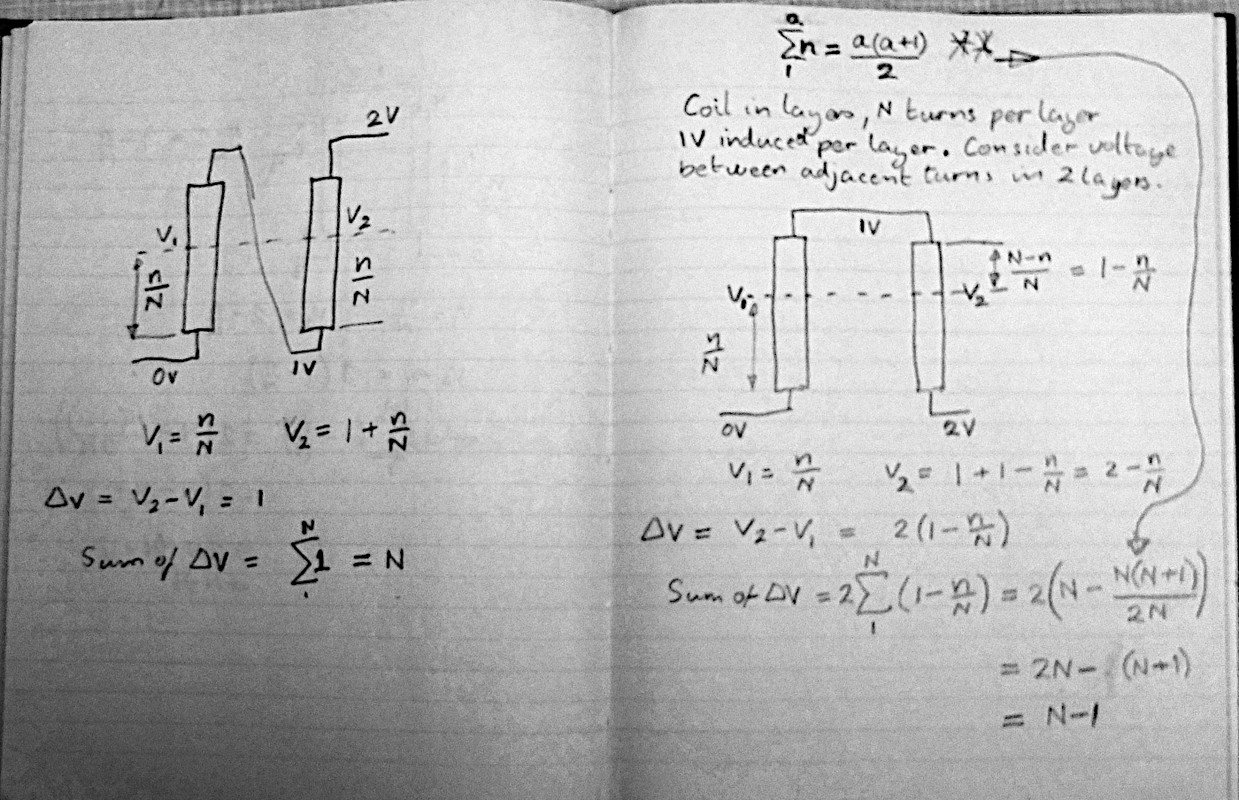 2V
V₁
V₂
n/N
n/N
0V
1V
V₁ = n/N V₂ = 1 + n/N
ΔV = V₂ - V₁ = 1
Sum of ΔV = Σ₁ᴺ 1 = N
Σ₁ᵃ n = a(a+1)/2 **
Coil in layers, N turns per layer
1V induced per layer. Consider voltage
between adjacent turns in 2 layers.
1V
V₁
V₂
N-n/N = 1 - n/N
n/N
0V
2V
V₁ = n/N V₂ = 1 + 1 - n/N = 2 - n/N
ΔV = V₂ - V₁ = 2(1 - n/N)
Sum of ΔV = 2 Σ₁ᴺ (1 - n/N) = 2(N - N(N+1)/2N)
= 2N - (N+1)
= N-1